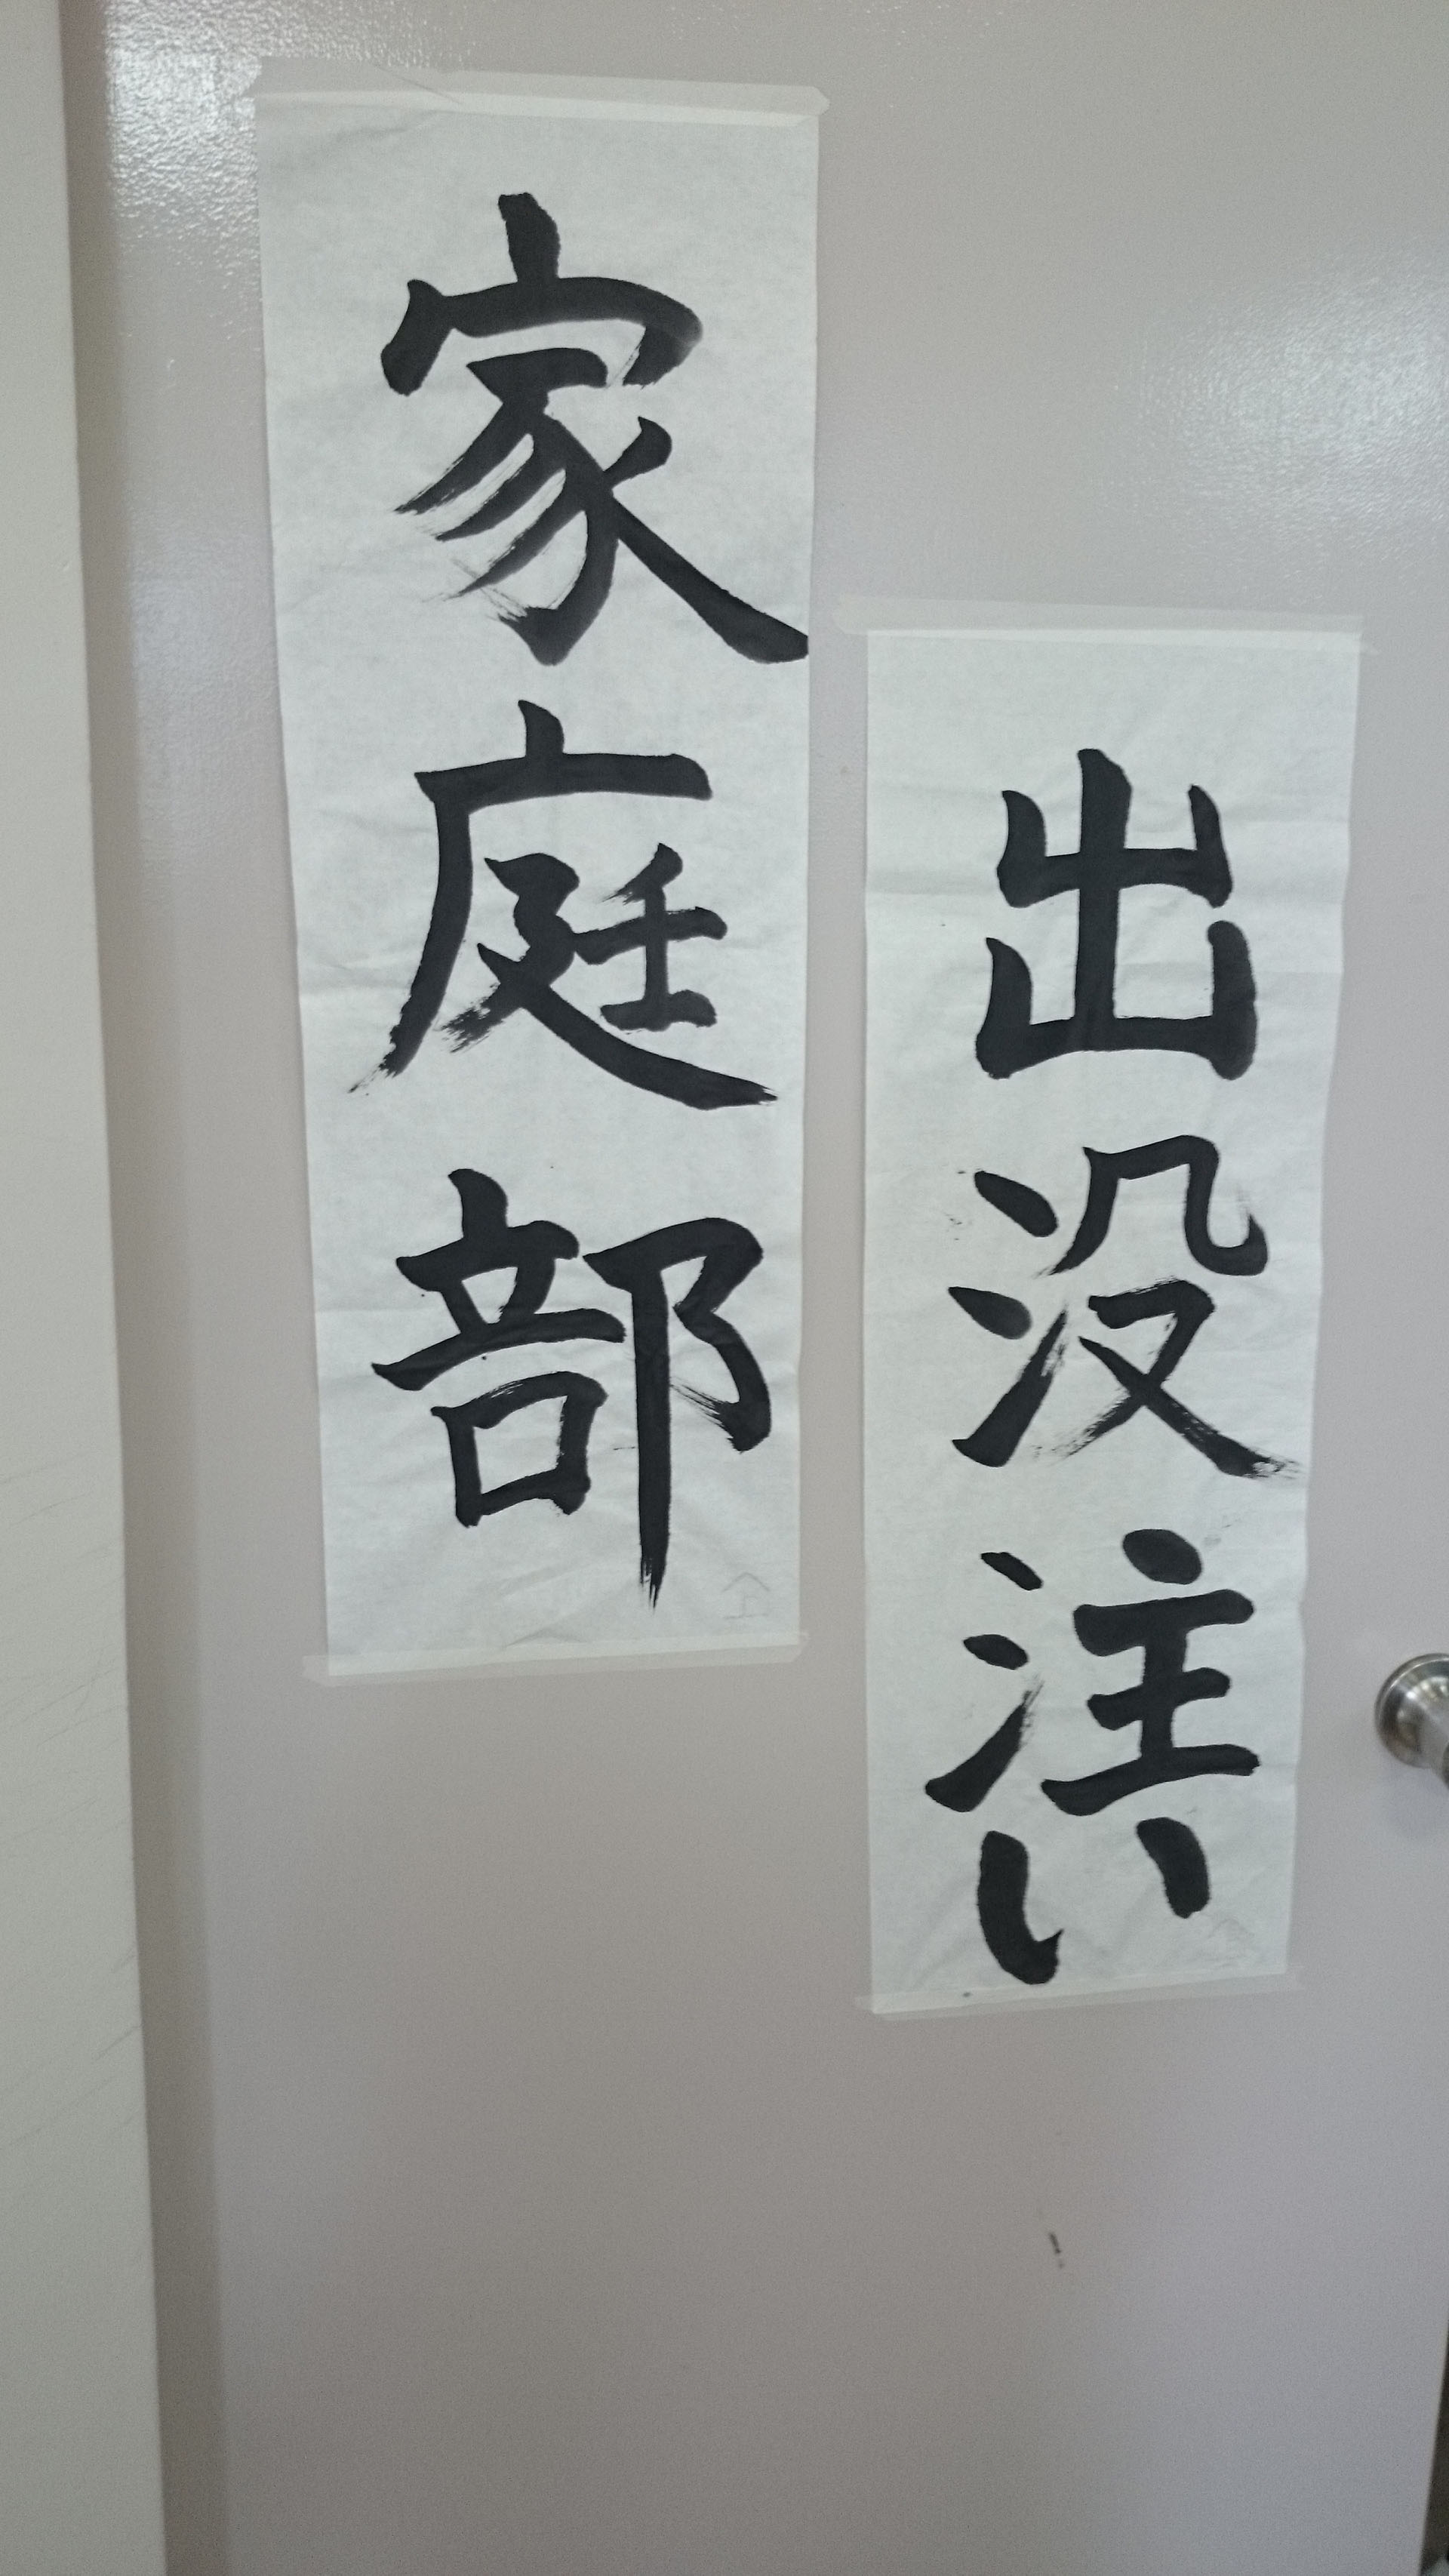 出没注い
家庭部